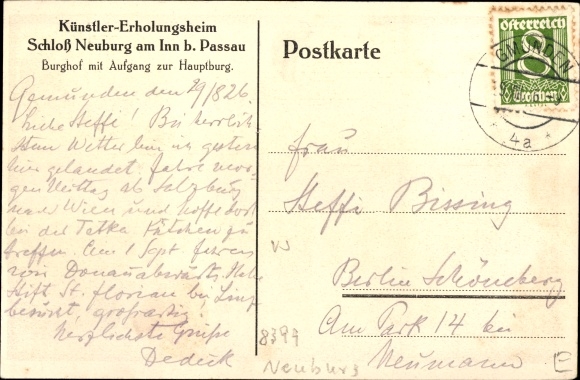 Künstler-Erholungsheim
Schloß Neuburg am Inn b. Passau
Burghof mit Aufgang zur Hauptburg.
Gemünden den 29/8 26.
Liebe Steffi! Bei herrlich
stem Wetter bin ich gestern
hier gelandet, fahre mor-
gen Mittag ab Salzburg
nach Wien und hoffe dort
bei der Tatka Kätchen zu
treffen. Am 1 Sept fahren
wir Donauabwärts. Habe
Stift St. Florian bei Linz
besucht, großartig.
Herzlichste Grüße
Dedeck
Postkarte
Österreich
8
Groschen
GMUNDEN
4a
Frau
Steffi Bissing
Berlin Schöneberg
Am Park 14 bei
Neumann
8397
Neuburg
E